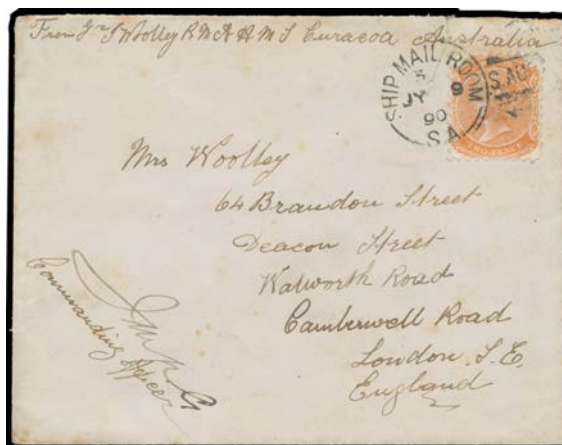 From Jn S Woolley R N A H M S Curacoa Australia
SHIP MAIL ROOM
5
JY 9
90
S.A
S.AU
TWO PENCE
Mrs Woolley
64 Brandon Street
Deacon Street
Walworth Road
Camberwell Road
London. S. E.
England
Commanding Officer